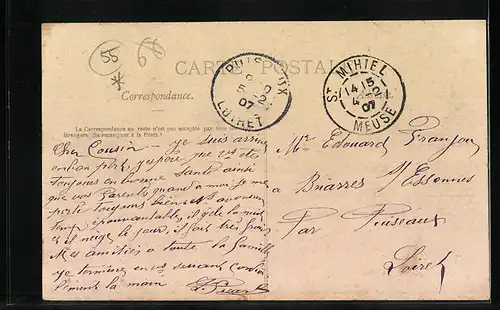 55
CARTE POSTALE
PUISEAUX
5 2
07
LOIRET
ST MIHIEL
14 15
4 2
07
MEUSE
Correspondance.
La Correspondance au recto n'est pas acceptée par tous
étrangers. (Se renseigner à la Poste.)
Cher Cousin - Je suis arrivé
en bon port, j'espère que vous êtes
toujours en bonne santé ainsi
que vos parents quand à moi je me
porte toujours bien
temps épouvantable, il gèle la nuit
et il neige le jour, il fait très froid
Mes amitiés à toute la famille
Je termine en vous serrant cordia
lement la main
Mr Edouard
à Briarres s/ Essonnes
Par Puiseaux
Loiret